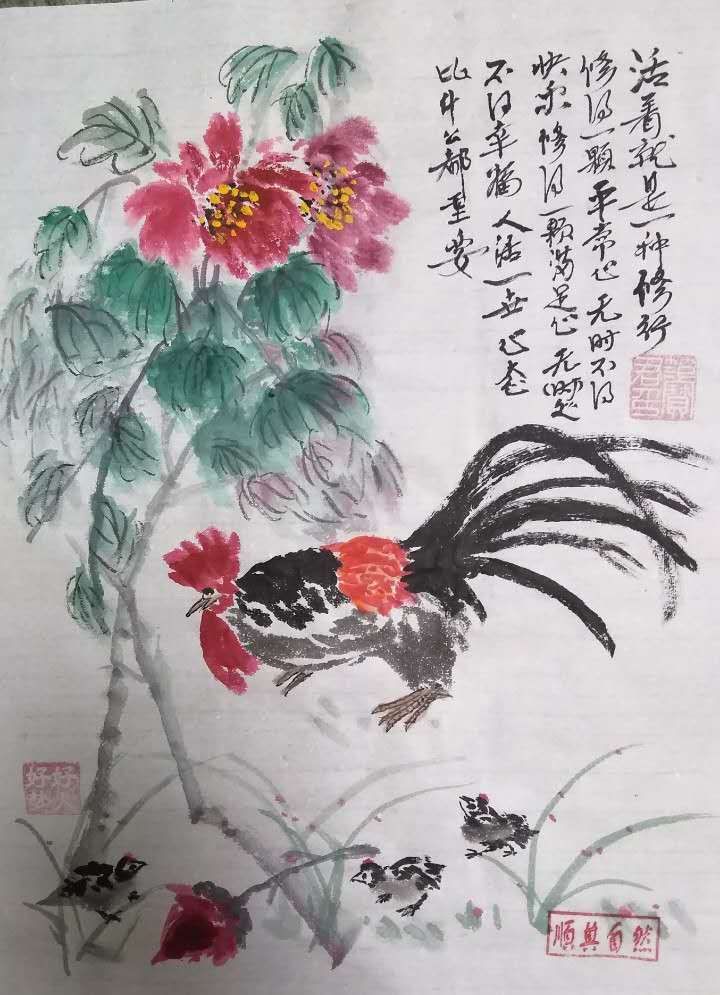 活着就是一种修行
修得一颗平常心无时不得
快乐修得一颗满足心无处
不得幸福人活一世心态
比什么都重要
順其自然